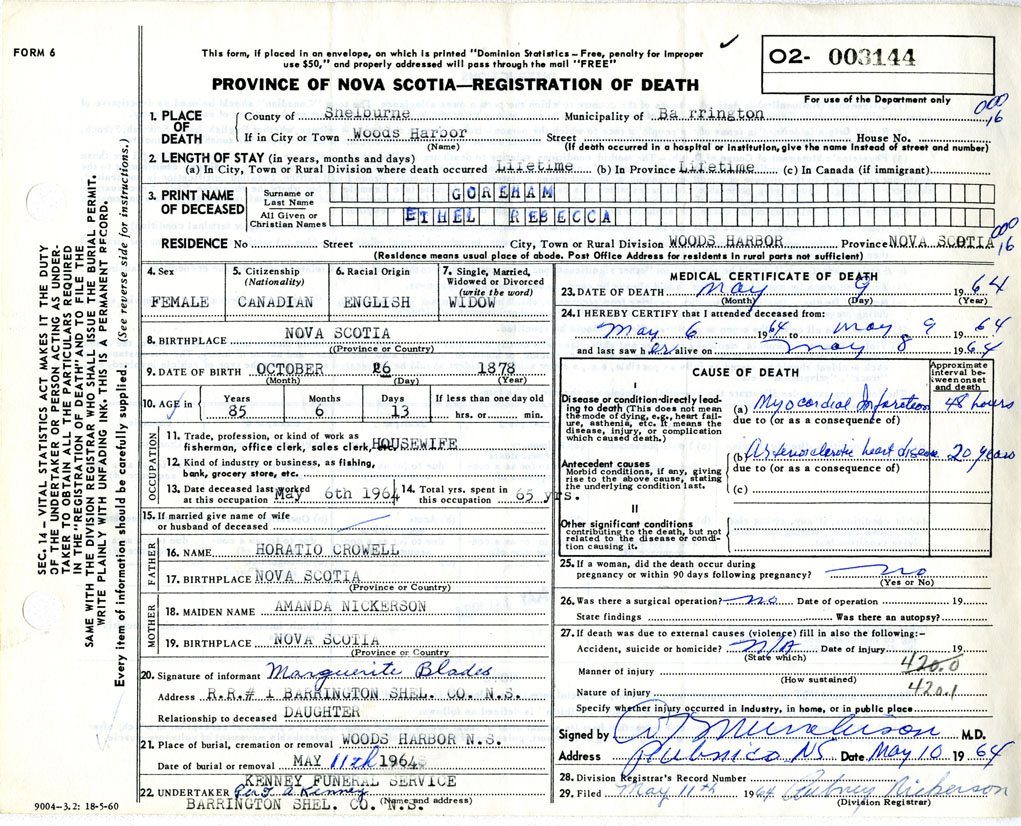 FORM 6
This form, if placed in an envelope, on which is printed "Dominion Statistics – Free, penalty for improper
use $50," and properly addressed will pass through the mail "FREE"
PROVINCE OF NOVA SCOTIA—REGISTRATION OF DEATH
02- 003144
For use of the Department only
000
16
1. PLACE OF DEATH
County of Shelburne Municipality of Ba rrington
If in City or Town Woods Harbor Street House No.
(Name) (If death occurred in a hospital or institution, give the name instead of street and number)
2. LENGTH OF STAY (in years, months and days)
(a) In City, Town or Rural Division where death occurred Lifetime (b) In Province Lifetime (c) In Canada (if immigrant)
3. PRINT NAME OF DECEASED
Surname or Last Name GOREHAM
All Given or Christian Names ETHEL REBECCA
000
16
RESIDENCE No Street City, Town or Rural Division WOODS HARBOR Province NOVA SCOTIA
(Residence means usual place of abode. Post Office Address for residents in rural parts not sufficient)
4. Sex
FEMALE
5. Citizenship
(Nationality)
CANADIAN
6. Racial Origin
ENGLISH
7. Single, Married,
Widowed or Divorced
(write the word)
WIDOW
8. BIRTHPLACE NOVA SCOTIA
((Province or Country)
9. DATE OF BIRTH OCTOBER 26 1878
(Month) (Day) (Year)
10. AGE in
Years Months Days If less than one day old
85 6 13 hrs. or min.
OCCUPATION
11. Trade, profession, or kind of work as
fisherman, office clerk, sales clerk, HOUSEWIFE
12. Kind of industry or business, as fishing,
bank, grocery store, etc
13. Date deceased last worked
at this occupation May 6th 1964
14. Total yrs. spent in
this occupation 65 yrs.
15. If married give name of wife
or husband of deceased
FATHER
16. NAME HORATIO CROWELL
17. BIRTHPLACE NOVA SCOTIA
(Province or Country)
MOTHER
18. MAIDEN NAME AMANDA NICKERSON
19. BIRTHPLACE NOVA SCOTIA
(Province or Country
20. Signature of informant Marguerite Blades
Address R.R.# 1 BARRINGTON SHEL. CO. N.S.
Relationship to deceased DAUGHTER
21. Place of burial, cremation or removal WOODS HARBOR N.S.
Date of burial or removal MAY 11th 1964
KENNEY FUNERAL SERVICE
22. UNDERTAKER Per A Kenney
(Name and address)
BARRINGTON SHEL. CO. N.S.
MEDICAL CERTIFICATE OF DEATH
23. DATE OF DEATH May 9 1964
(Month) (Day) (Year)
24. I HEREBY CERTIFY that I attended deceased from:
May 6 1964 to May 9 1964
and last saw her alive on May 8 1964
CAUSE OF DEATH
Approximate interval between onset and death
I
Disease or condition directly leading to death (This does not mean the mode of dying, e.g., heart failure, asthenia, etc. It means the disease, injury, or complication which caused death.)
(a) Myocardial Infarction 48 hours
due to (or as a consequence of)
Antecedent causes
Morbid conditions, if any, giving rise to the above cause, stating the underlying condition last.
(b) Arteriosclerotic heart disease 20 years
due to (or as a consequence of)
(c)
II
Other significant conditions
contributing to the death, but not related to the disease or condition causing it.
25. If a woman, did the death occur during
pregnancy or within 90 days following pregnancy? no
(Yes or No)
26. Was there a surgical operation? no Date of operation 19
State findings Was there an autopsy?
27. If death was due to external causes (violence) fill in also the following:–
Accident, suicide or homicide? N/A Date of injury 19
(State which)
420.0
Manner of injury
(How sustained)
420.1
Nature of injury
Specify whether injury occurred in industry, in home, or in public place
Signed by M.D.
Address Pubnico NS Date May 10 1964
28. Division Registrar's Record Number
29. Filed May 11th 1964 Aubrey Nickerson
(Division Registrar)
SEC. 14 – VITAL STATISTICS ACT MAKES IT THE DUTY
OF THE UNDERTAKER OR PERSON ACTING AS UNDER-
TAKER TO OBTAIN ALL THE PARTICULARS REQUIRED
IN THE "REGISTRATION OF DEATH" AND TO FILE THE
SAME WITH THE DIVISION REGISTRAR WHO SHALL ISSUE THE BURIAL PERMIT.
WRITE PLAINLY WITH UNFADING INK. THIS IS A PERMANENT RECORD.
Every item of information should be carefully supplied. (See reverse side for instructions.)
9004–3.2: 18-5-60